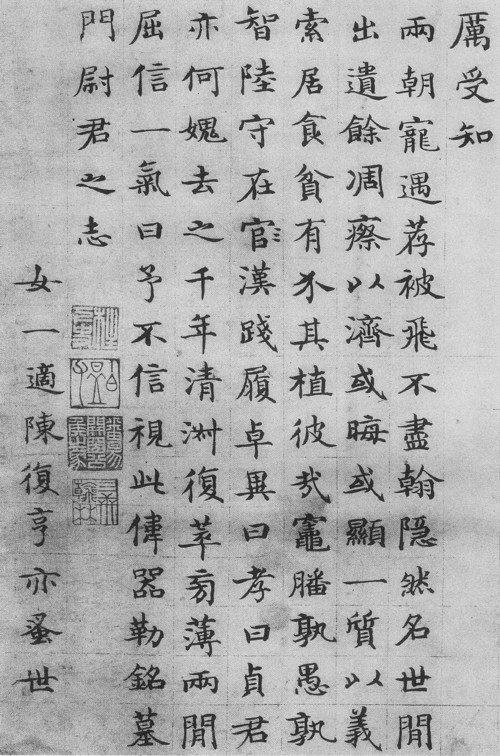 厲受知
兩朝寵遇荐被飛不盡翰隱然名世閒
出遺餘凋瘵以濟或晦或顯一質以義
索居食貧有介其植彼哉竈膰孰愚孰
智陸守在官〻漢踐履卓異曰孝曰貞君
亦何媿去之千年清淑復萃旁薄兩閒
屈信一氣曰予不信視此偉器勒銘墓
門尉君之志
女一適陳復亨亦蚤世